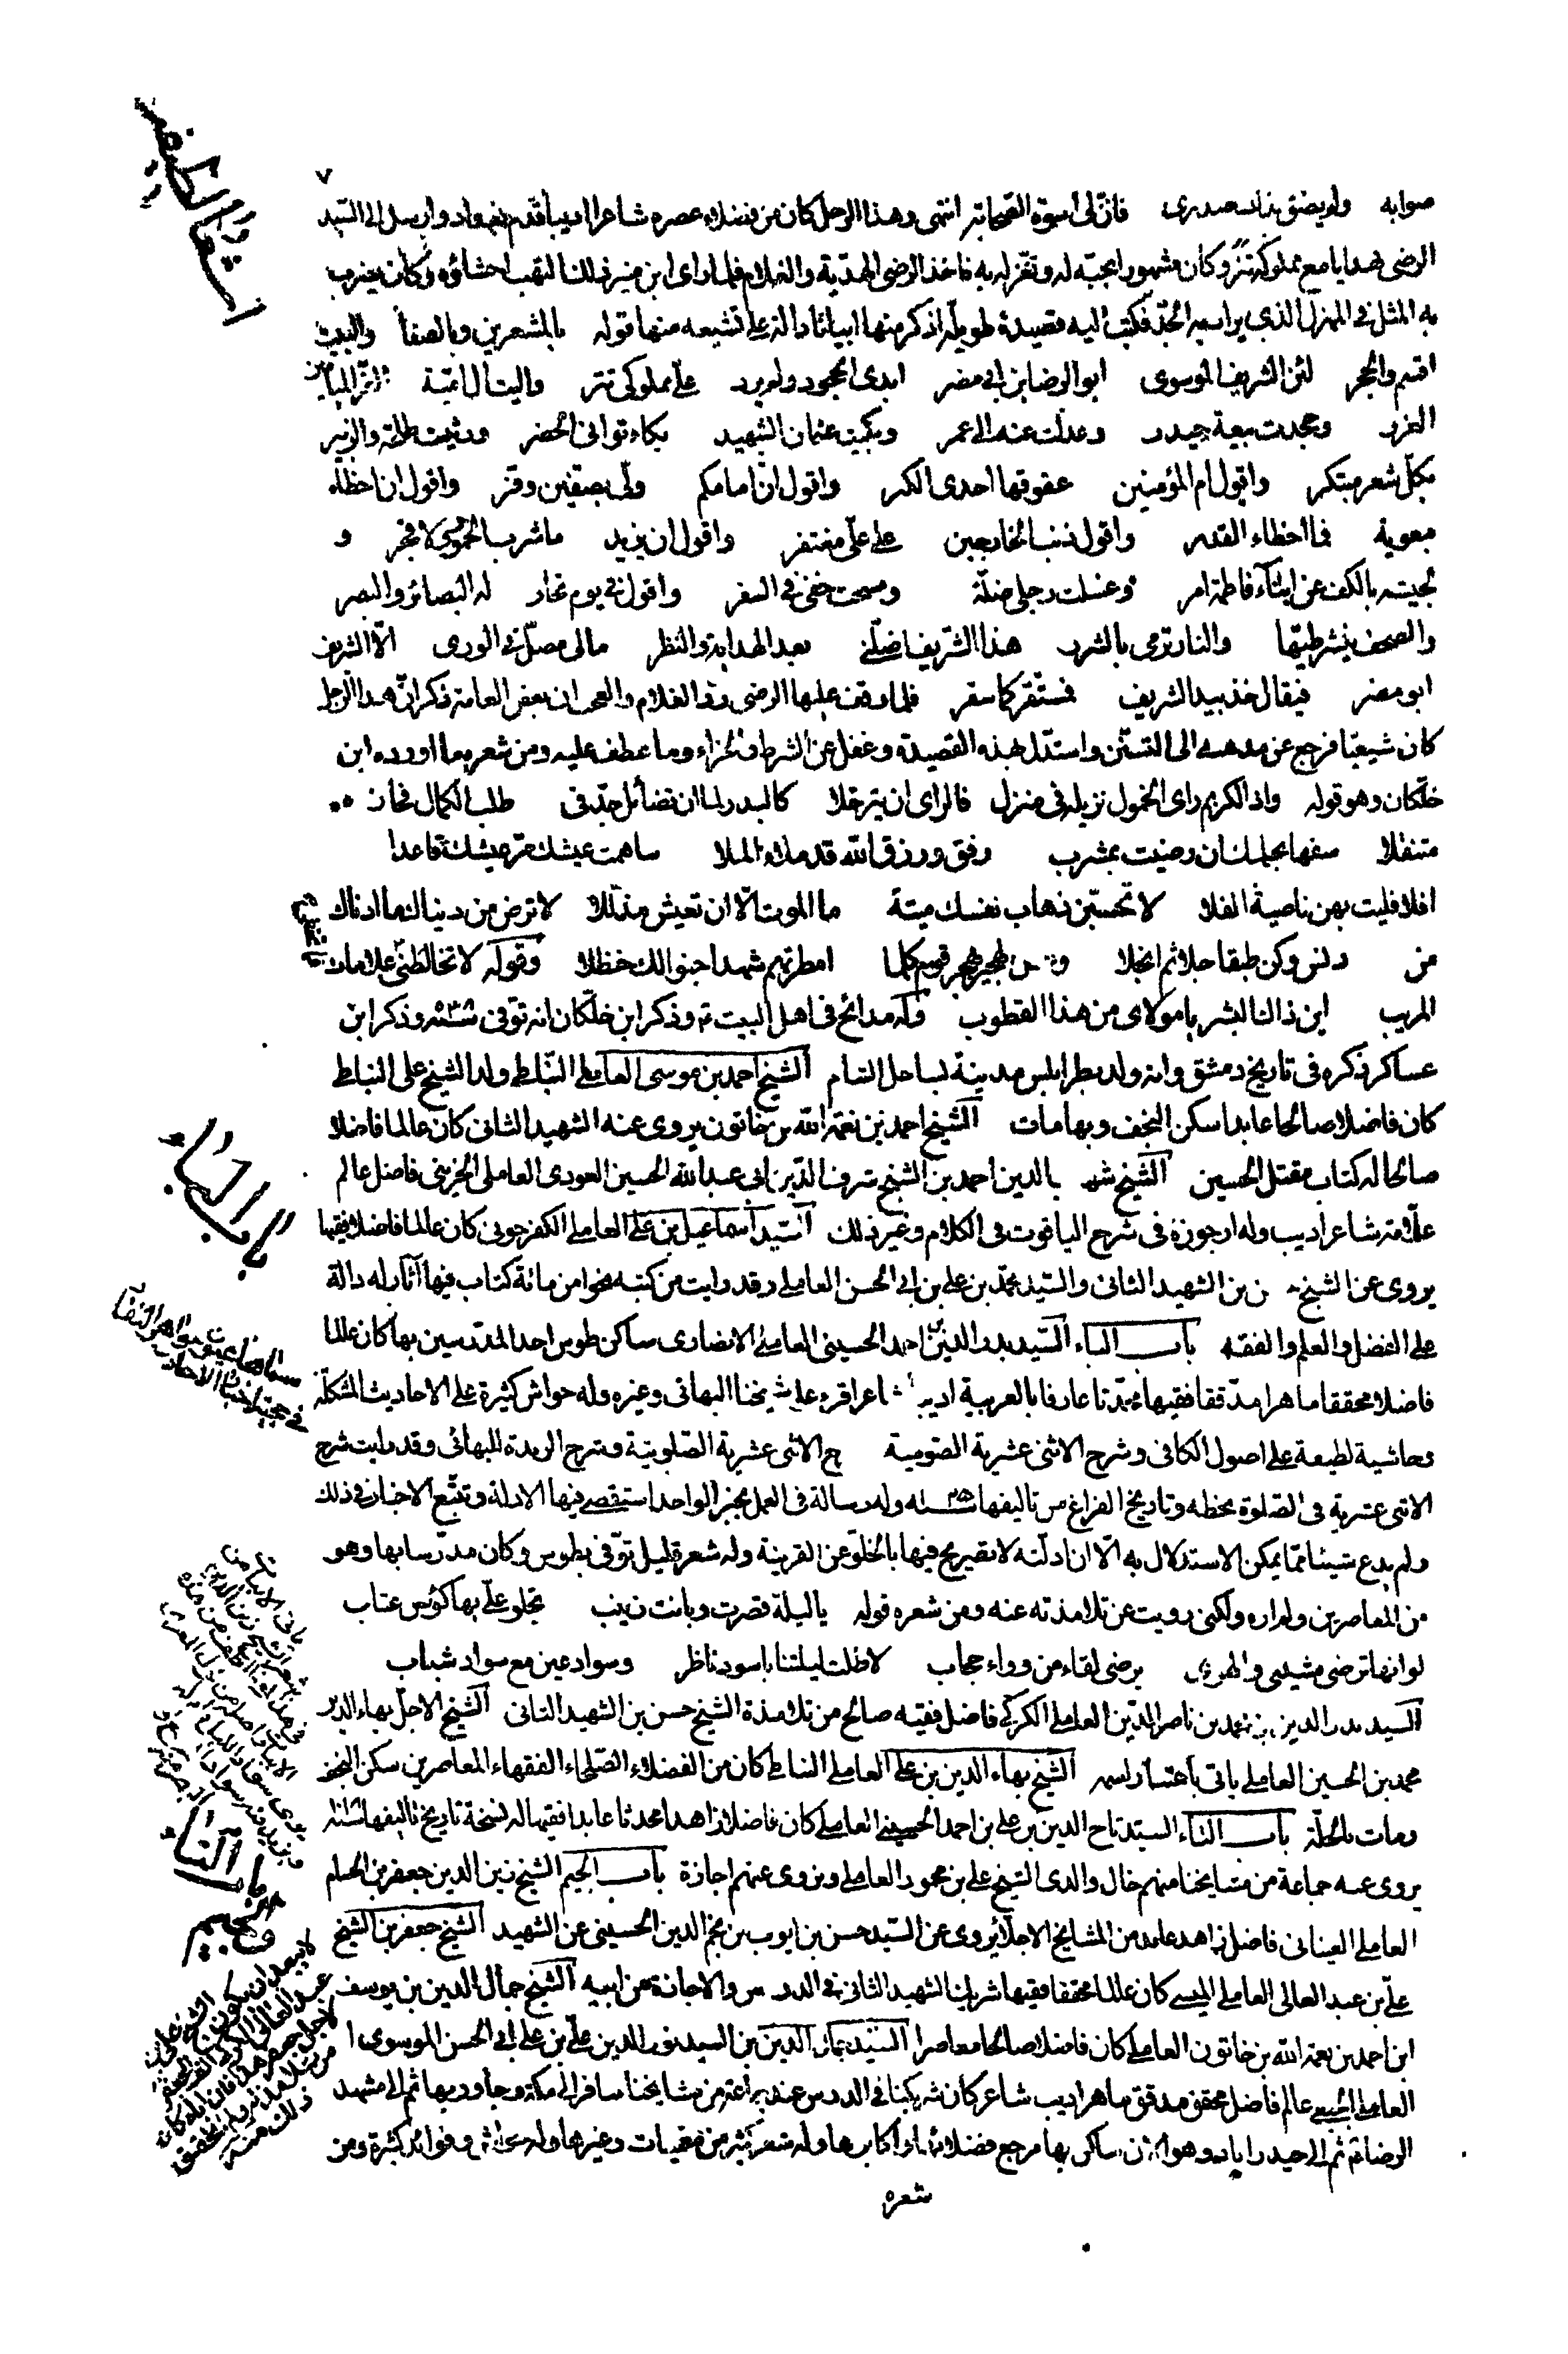 ٧
صوابه ولم يضق بذلك صدري فان لي اسوة الصحابة انتهى وهذا الرجل كان من فضلاء عصره شاعرا اديبا قدم بغداد وارسل الى السيد
الرضي هدايا مع مملوكه تتر وكان مشهورا بمحبته له وتغزله به فاخذ الرضي الهدية والغلام فلما راى ابن منير ذلك التهب احشاؤه وكان يضرب
به المثل في الهزل الذي يراد به الجد فكتب اليه قصيدة طويلة اذكر منها ابياتا دالة على تشيعه منها قوله بالمشعرين وبالصفا والبيت
اقسم والحجر لئن الشريف الموسوي ابو الرضا بن ابي مضر ابدى الجحود ولم يرد علي مملوكي تتر واليت ال امية الميامين
الغرر وجحدت بيعة حيدر وعدلت عنه الى عمر وبكيت عثمان الشهيد بكاء نسوان الحضر ورثيت طلحة والزبير
بكل شعر مبتكر واقول ام المؤمنين عقوقها احدى الكبر واقول ان امامكم ولى بصفين وفر واقول ان اخطاء
معوية فما اخطاء القدر واقول ذنب الخارجين على علي مغتفر واقول ان يزيد ما شرب الخمور ولا فجر و
لجيشه بالكف عن ابناء فاطمة امر وغسلت رجلي ضلة ومسحت خفي في السفر واقول في يوم تحار له البصائر والبصر
والصحف ينشر طيها والنار ترمي بالشرر هذا الشريف اضلني بعد الهداية والنظر مالي مضل في الورى الا الشريف
ابو مضر فيقال خذ بيد الشريف فمستقركما سقر فلما وقف عليها الرضي رد الغلام والعجب ان بعض العامة ذكر ان هذا الرجل
كان شيعيا فرجع عن مذهبه الى التسنن واستدل بهذه القصيدة وغفل عن الشرط والجزاء وما عطف عليه ومن شعره ما اورده ابن
خلكان وهو قوله واذا الكريم راى الخمول نزيله في منزل فالراى ان يترحلا كالبدر لما ان تضائل جد في طلب الكمال فحازه
متنقلا سفها بحلمك ان رضيت بمشرب رنق ورزق الله قد ملاء الملا ساهمت عيسك مر عيشك قاعدا
افلا فليت بهن ناصية الفلا لا تحسبن ذهاب نفسك ميتة ما الموت الا ان تعيش مذللا لا ترض من دنياك ما ادناك
من دنس وكن طيفا جلا ثم انجلا وصل الهجير بهجر قوم كلما امطرتهم شهدا جنوا لك حنظلا وقوله لا تخالطني علامات
المريب اين ذاك البشر يا مولاي من هذا القطوب وله مدائح في اهل البيت ع وذكر ابن خلكان انه توفي سنة وذكر ابن
عساكر ذكره في تاريخ دمشق وانه ولد بطرابلس مدينة بساحل الشام الشيخ احمد بن موسى العاملي النباطي ولد الشيخ علي النباطي
كان فاضلا صالحا عابدا سكن النجف وبها مات الشيخ احمد بن نعمة الله بن خاتون يروي عنه الشهيد الثاني كان عالما فاضلا
صالحا له كتاب مقتل الحسين الشيخ شهاب الدين احمد بن الشيخ شرف الدين ابي عبد الله الحسين العودي العاملي الجزيني فاضل عالم
علامة شاعر اديب وله ارجوزة في شرح الياقوت في الكلام وغير ذلك السيد اسماعيل بن علي العاملي الكفرحوني كان عالما فاضلا فقيها
يروي عن الشيخ حسن بن الشهيد الثاني والسيد محمد بن علي بن ابي الحسن العاملي وقد رايت من كتبه نحوا من مائة كتاب فيها اثار له دالة
على الفضل والعلم والفقه باب الباء السيد بدر الدين بن احمد الحسيني العاملي الانصاري ساكن طوس احد المدرسين بها كان عالما
فاضلا محققا ماهرا مدققا فقيها محدثا عارفا بالعربية اديبا شاعرا قرء على شيخنا البهائي وغيره وله حواش كثيرة على الاحاديث المشكلة
وحاشية لطيفة على اصول الكافي وشرح الاثني عشرية الصومية وشرح الاثني عشرية الصلوتية وشرح الزبدة للبهائي وقد رايت شرح
الاثني عشرية في الصلوة بخطه وتاريخ الفراغ من تاليفها سنة وله رسالة في العمل بخبر الواحد استقصى فيها الادلة وتتبع الاخبار في ذلك
ولم يدع شيئا مما يمكن الاستدلال به الا ان ادلته لا تصريح فيها بالخلو عن القرينة وله شعر قليل توفي بطوس وكان مدرسا بها وهو
من المعاصرين ولم اره ولكني رويت عن تلامذته عنه ومن شعره قوله يا ليلة قصرت وباتت زينب تجلو علي بها كؤس عتاب
لو انها ترضى مشيبي والهوى يرضى لقاء من وراء حجاب لاظلت ليلتنا باسود ناظر وسواد عين مع سواد شباب
السيد بدر الدين بن محمد بن ناصر الدين العاملي الكركي فاضل فقيه صالح من تلامذة الشيخ حسن بن الشهيد الثاني الشيخ الاجل بهاء الدين
محمد بن الحسين العاملي ياتي باعتبار اسمه الشيخ بهاء الدين بن علي العاملي النباطي كان من الفضلاء الصلحاء الفقهاء المعاصرين سكن النجف
ومات بالحلة باب التاء السيد تاج الدين بن علي بن احمد الحسيني العاملي كان فاضلا زاهدا محدثا عابدا فقيها له نسخة تاريخ تاليفها سنة
يروي عنه جماعة من مشايخنا منهم خال والدي الشيخ علي بن محمود العاملي ونروي عنهم اجازة باب الجيم الشيخ زين الدين جعفر بن الحسام
العاملي العيناثي فاضل زاهد عابد من المشايخ الاجلاء يروي عن السيد حسن بن ايوب بن نجم الدين الحسيني عن الشهيد الشيخ جعفر بن الشيخ
علي بن عبد العالي العاملي الميسي كان عالما محققا فقيها شريك الشهيد الثاني في الدرس والاجازة من ابيه الشيخ جمال الدين بن يوسف
ابن احمد بن نعمة الله بن خاتون العاملي كان فاضلا صالحا معاصرا السيد جمال الدين بن السيد نور الدين علي بن علي ابي الحسن الموسوي
العاملي الجبعي عالم فاضل محقق مدقق ماهر اديب شاعر كان شريكنا في الدرس عند جماعة من مشايخنا سافر الى مكة وجاور بها ثم الى مشهد
الرضا ع ثم الى حيدراباد وهو الان ساكن بها مرجع فضلائها واكابرها وله شعر كثير من معميات وغيرها وله حواش وفوائد كثيرة ومن
شعره
باب الباء
باب التاء
والجيم